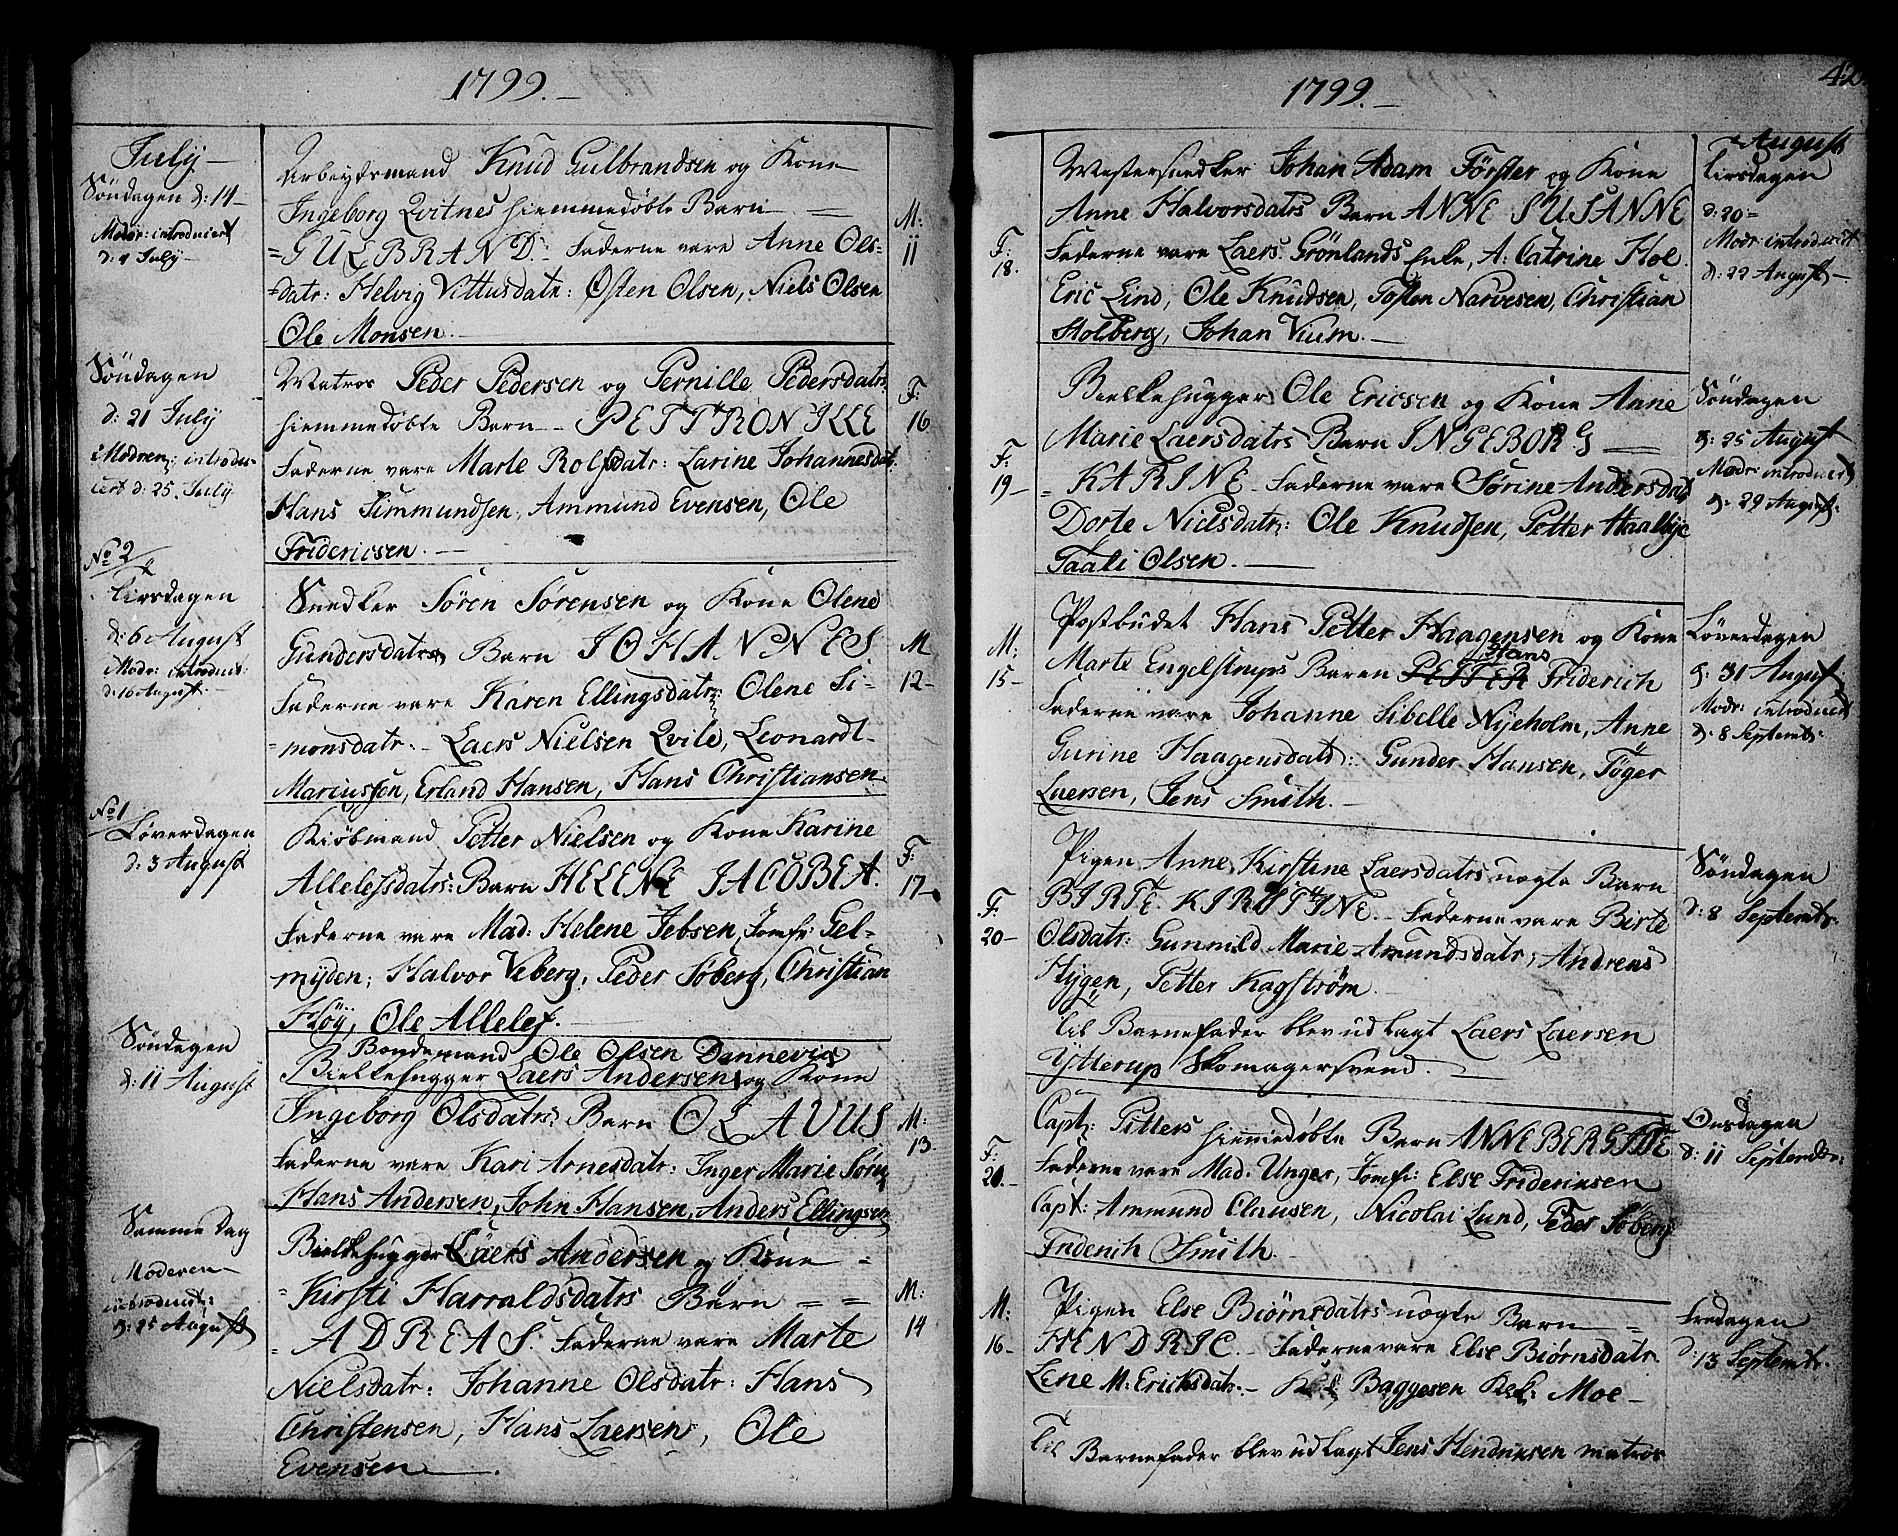 1799.
July
Söndagen d: 14
Modr: introduceret
d: 4 July
Arbeydsmand Knud Gulbrandsen og Kone
Ingeborg Qvitnes hiemmedøbte Barn
GULBRAND. Faderne vare Anne Ols-
datr: Helvig Vittusdatr: Østen Olsen, Niels Olsen
Ole Monsen.
M:
11
Söndagen
d: 21 July
Modren: introdu-
cert d: 25. July
Matros Peder Pedersen og Pernille Pedersdatrs
hiemmedøbte Barn PETTRONILLE
Faderne vare Marte Rolfsdatr: Larine Johannesdatr.
Hans Simmundsen, Ammund Evensen, Ole
Fridericsen.
F:
16
No 2
Tirsdagen
d: 6 August
Modr: introducert
d: 10 August
Snedker Sören Sörensen og Kone Olene
Gundersdatrs Barn JOHANNES
Faderne vare Karen Ellingsdatr: Olene Si-
monsdatr: Laers Nielsen Qvile, Leonardt
Marcussen, Erland Hansen, Hans Christiansen.
M
12
No 1
Löverdagen
d: 3 August
Kiöbmand Petter Nielsen og Kone Karine
Allelefsdatrs: Barn HELENE JACOBEA.
Faderne vare Mad: Helene Jebsen, Jomfr: Gel-
myden; Halvor Veberg, Peder Söberg, Christian
Flöy, Ole Allelef.
F:
17
Söndagen
d: 11 August
Bondemand Ole Olsen Dannevig
Bielkehugger Laers Andersen og Kone
Ingeborg Olsdatrs: Barn OLAVUS
Faderne vare Kari Arnesdatr: Inger Marie Sörn
Hans Andersen, John Hansen, Anders Ellingsen
M:
13
Samme Dag
Moderen
introducert:
d: 25 August
Bielkehugger Laers Andersen og Kone
Kirsti Harraldsdatrs Barn
ADREAS. Faderne vare Marte
Nielsdatr: Johanne Olsdatr: Hans
Christensen, Hans Laersen, Ole
Evensen.
M:
14
1799.
42
August
Tirsdagen
d: 20
Modr: introducert
d: 22 August
F:
18.
Mestersnedker Johan Adam Förster og Kone
Anne Halvorsdatrs Barn ANNE SUSANNE
Faderne vare Laers Grönlands Enke, A: Catrine Hol
Eric Lind, Ole Knudsen, Tosten Narvesen, Christian
Holberg, Johan Vium.
F:
19
Bielkehugger Ole Ericsen og Kone Anne
Marie Laersdatrs Barn INGEBORG
KARINE Faderne vare Sörine Andersdatr
Dorte Nielsdatr: Ole Knudsen, Petter Haalbye
Taali Olsen.
Söndagen
d: 25 August
Modr: introducert
d: 29 August.
M:
15
Postbudet Hans Petter Haagensen og Kone
Hans
Marte Engelstrups Barn PETTER Friderich
Faderne vare Johanne Sibelle Nyeholm, Anne
Gurine Haagensdatr: Gunder Hansen, Töger
Laersen, Jens Smith.
Löverdagen
d: 31 August
Modr: introducert
d: 8 Septembr:
F.
20
Pigen Anne Kirstine Laersdatrs uægte Barn
BIRTE KIRSTINE. Faderne vare Birte
Olsdatr: Gunnild Marie Amundsdatr, Andreas
Hygen, Petter Kagström.
Til Barnefader blev udlagt Laers Laersen
Ytterup Skomagersvend.
Söndagen
d: 8 Septembr.
F.
20.
Capt: Pitters hiemmedøbte Barn ANNE BERGITTE
Faderne vare Mad. Unger, Jomfr: Else Fridericksen
Capt: Ammund Clausen, Nicolai Lund, Peder Söberg
Friderich Smith.
Onsdagen
d: 11 September:
M:
16
Pigen Else Biörnsdatrs uægte Barn
HENDRIC. Faderne vare Else Biörnsdatr
Lene M: Ericksdatr: Baggesen Moe
Til Barnefader blev udlagt Jens Hendricksen matros
Fredagen
d: 13 Septembr.